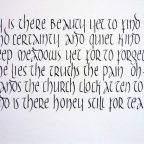 y, is there Beauty yet to find
nd Certainty and Quiet kind
eep meadows yet for to forget
he lies the truths the pain oh
ands the church clock at ten to
nd is there honey still for tea